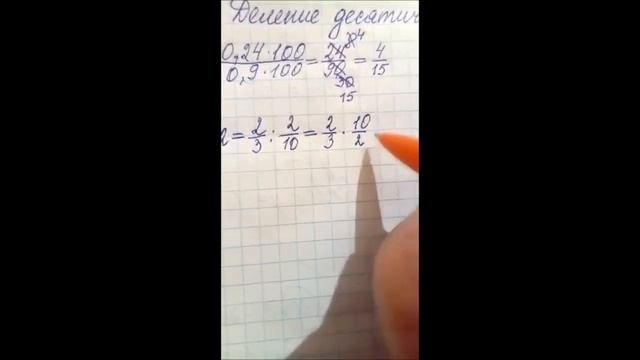 Деление десятич
0,24·100/0,9·100 = 24/90 = 4/15
8 4
30
15
2 = 2/3 : 2/10 = 2/3 · 10/2